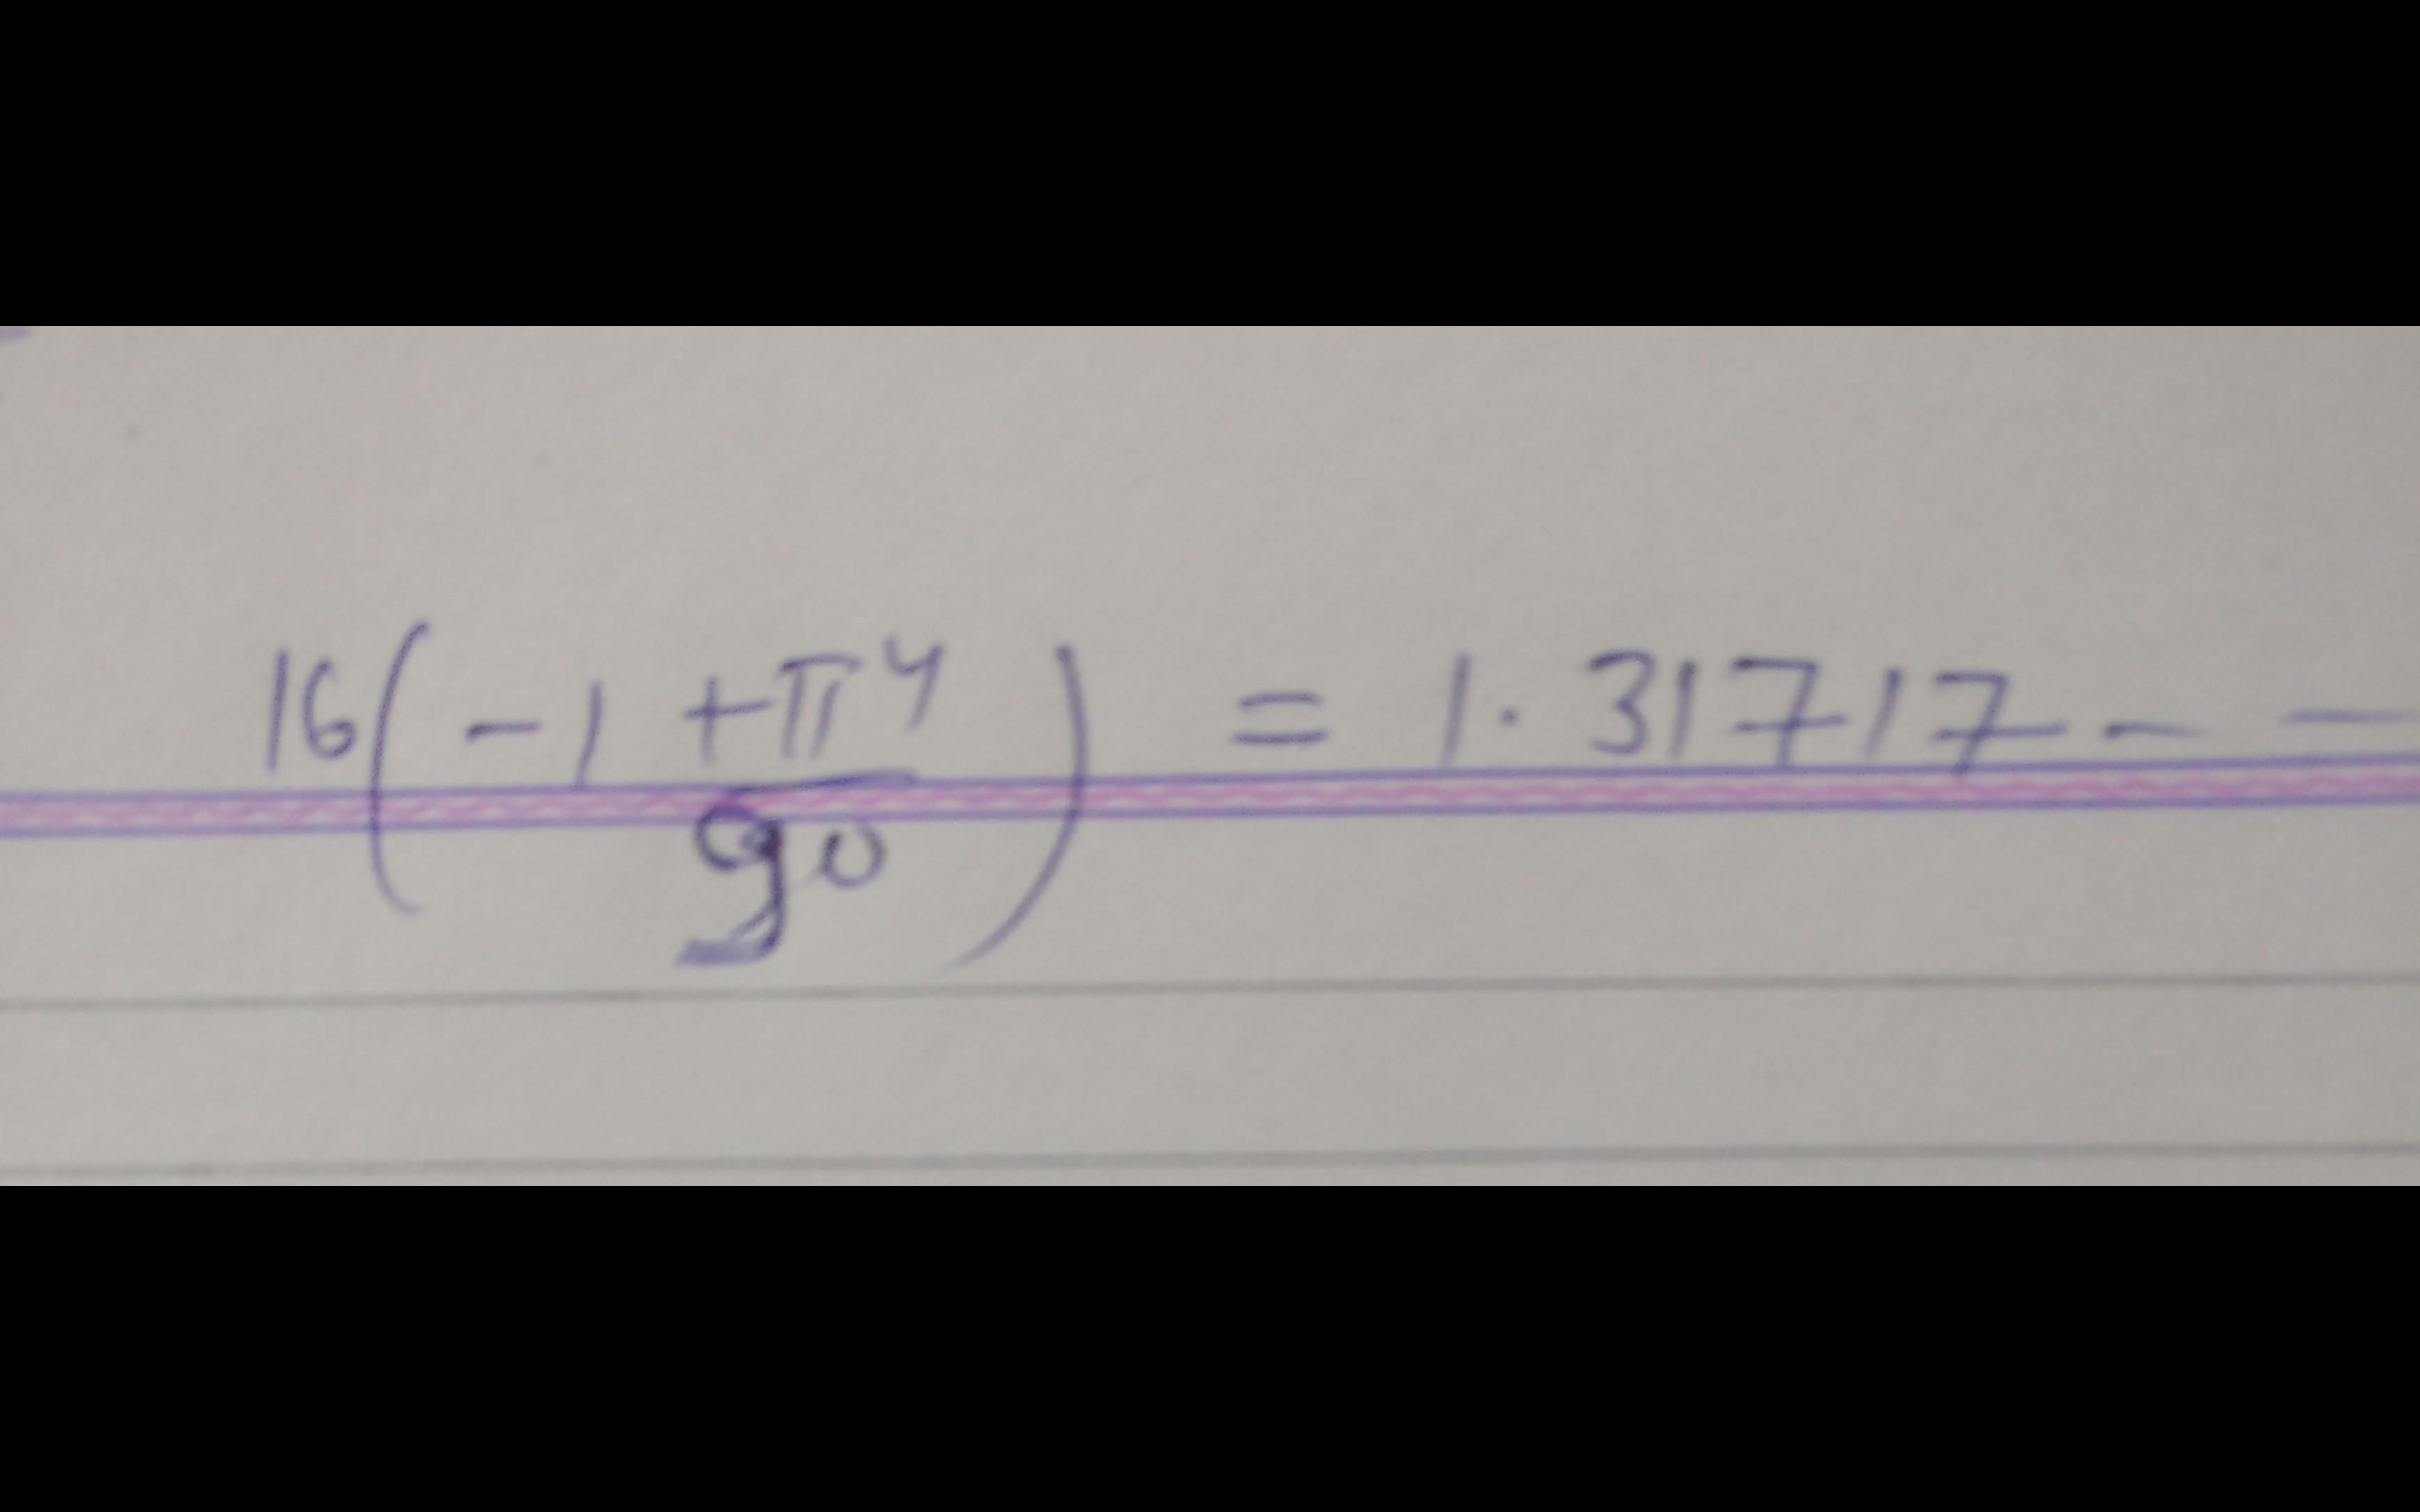 16(-1 + π⁴/90) = 1.31717 - -